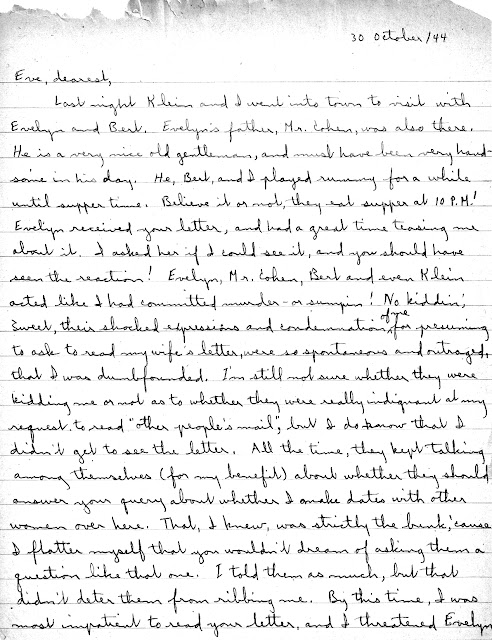 30 October/44
Eve, dearest,
Last night Klein and I went into town to visit with
Evelyn and Bert. Evelyn's father, Mr. Cohen, was also there.
He is a very nice old gentleman, and must have been very hand-
some in his day. He, Bert, and I played rummy for a while
until supper time. Believe it or not, they eat supper at 10 P.M.!
Evelyn received your letter, and had a great time teasing me
about it. I asked her if I could see it, and you should have
seen the reaction! Evelyn, Mr. Cohen, Bert and even Klein
acted like I had committed murder - or sumpin! No kiddin',
Sweet, their shocked expressions and condemnation of me for presuming
to ask to read my wife's letter, were so spontaneous and outraged,
that I was dumbfounded. I'm still not sure whether they were
kidding me or not as to whether they were really indignant at my
request to read "other people's mail", but I do know that I
didn't get to see the letter. All the time, they kept talking
among themselves (for my benefit) about whether they should
answer your query about whether I make dates with other
women over here. That, I knew, was strictly the bunk, 'cause
I flatter myself that you wouldn't dream of asking them a
question like that one. I told them as much, but that
didn't deter them from ribbing me. By this time, I was
most impatient to read your letter, and I threatened Evelyn